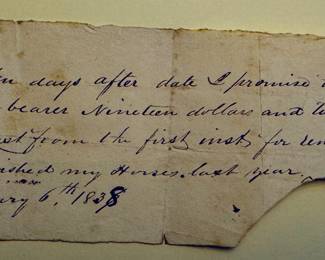 days after date I promise
bearer Nineteen dollars and
from the first inst for
my Horses last year
6th 1838